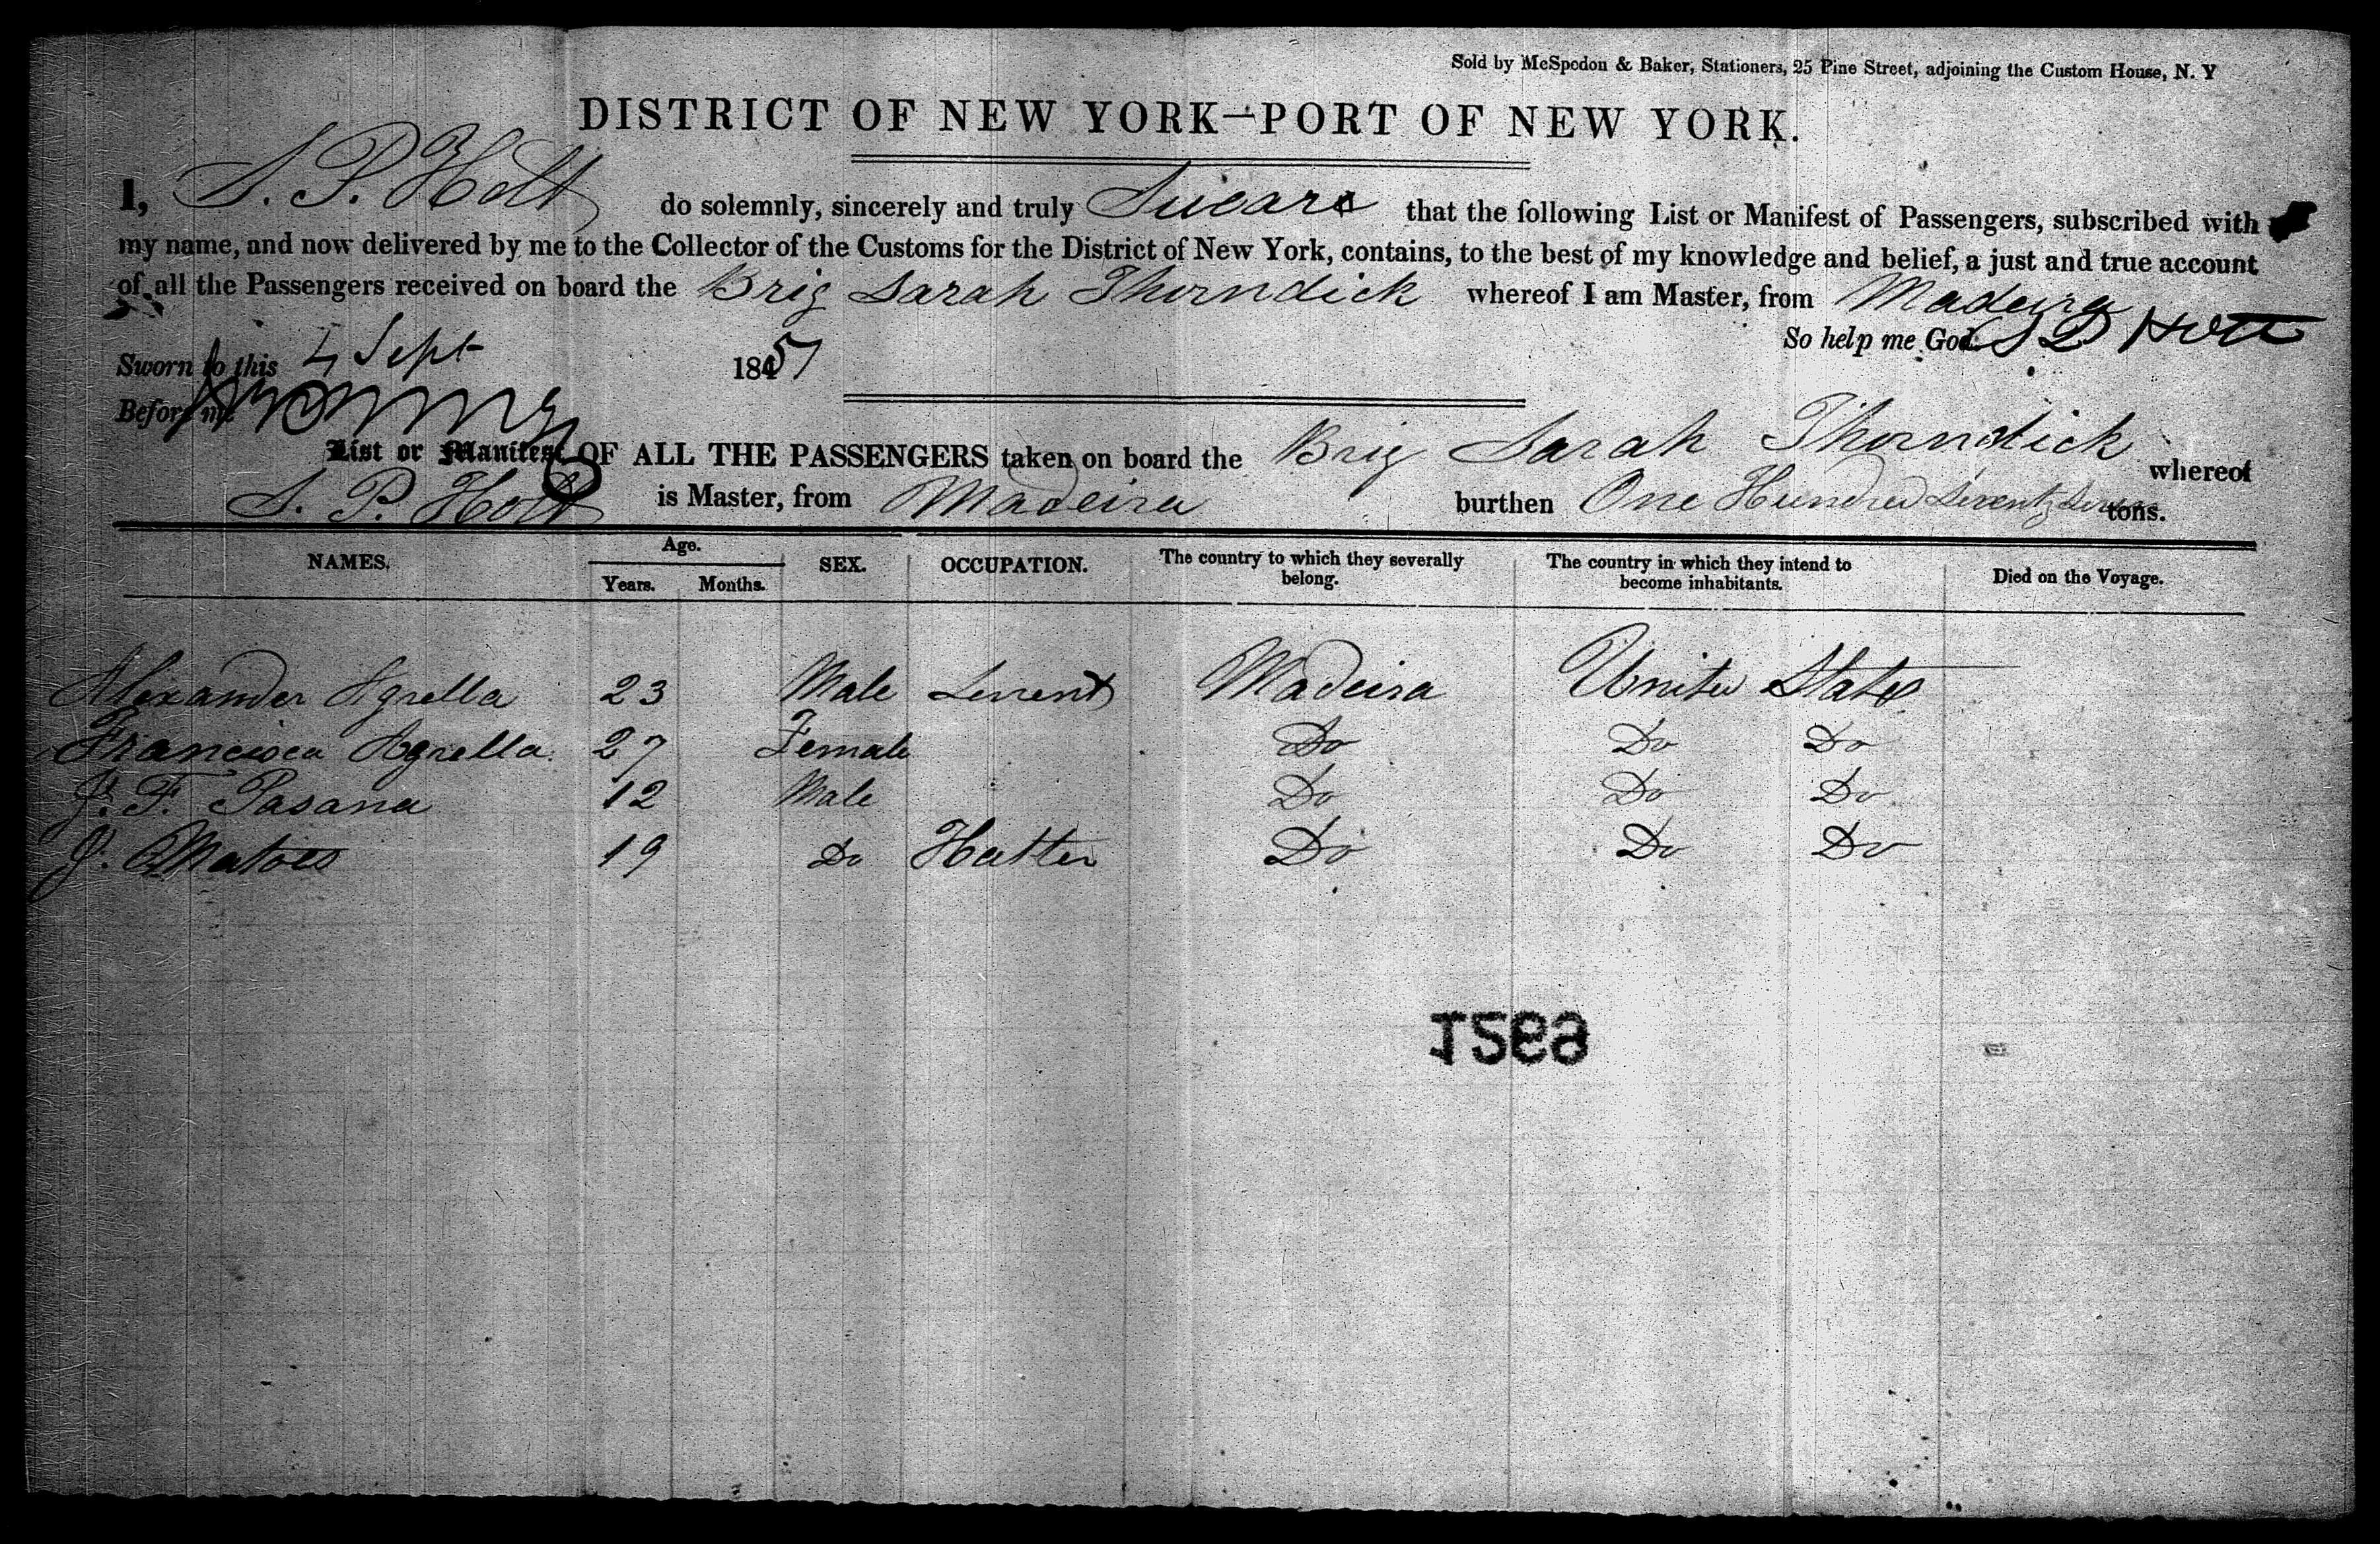 Sold by McSpedon & Baker, Stationers, 25 Pine Street, adjoining the Custom House, N. Y
DISTRICT OF NEW YORK—PORT OF NEW YORK.
I, S. P. Holt do solemnly, sincerely and truly Swear that the following List or Manifest of Passengers, subscribed with
my name, and now delivered by me to the Collector of the Customs for the District of New York, contains, to the best of my knowledge and belief, a just and true account
of all the Passengers received on board the Brig Sarah Thorndick whereof I am Master, from Madeira
So help me God. S P Holt
Sworn to this 4 Sept 1851
Before me
List or Manifest OF ALL THE PASSENGERS taken on board the Brig Sarah Thorndick whereof
S. P. Holt is Master, from Madeira burthen One Hundred Seventy Seven tons.
NAMES. Age. Years. Months. SEX. OCCUPATION. The country to which they severally belong. The country in which they intend to become inhabitants. Died on the Voyage.
Alexander Agrella 23 Male Madeira United States
Francisca Agrella 27 Female Do Do Do
J. F. Pasana 12 Male Do Do Do
J. 19 Do Hatter Do Do Do